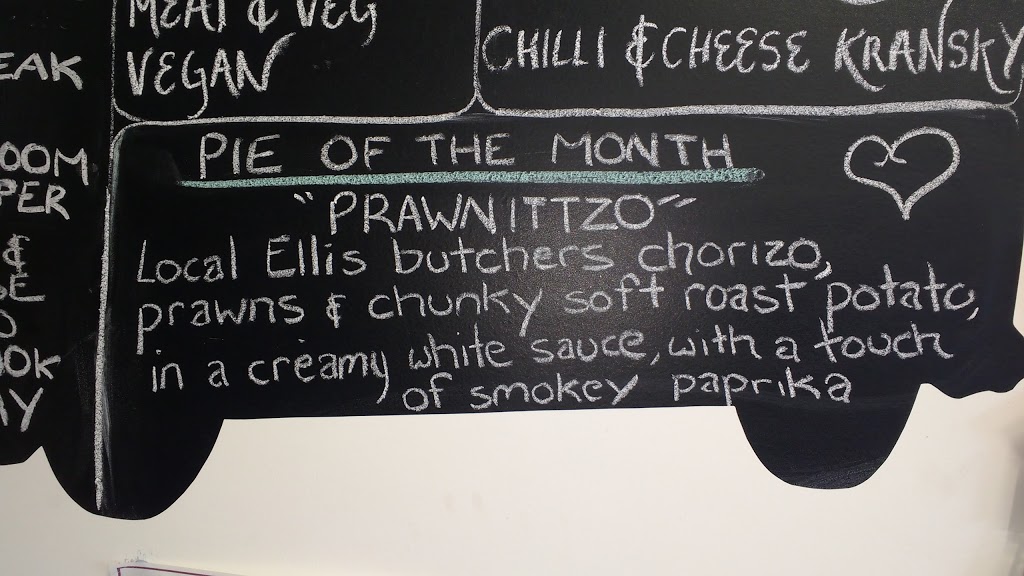 MEAT & VEG
VEGAN
CHILLI & CHEESE KRANSKY
EAK
OOM
PER
&
PIE OF THE MONTH
"PRAWNITTZO"
Local Ellis butchers chorizo,
prawns & chunky soft roast potato,
in a creamy white sauce, with a touch
of smokey paprika